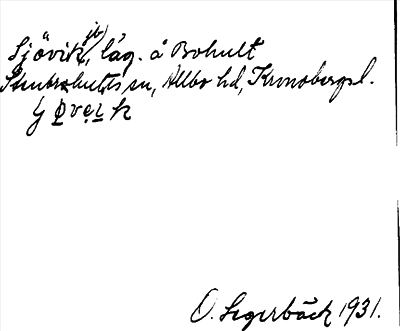 Sjövik, jb, läg. å Bohult
Stenbrohults sn, Allbo hd, Kronobergs l.
O. Segerbäck 1931.